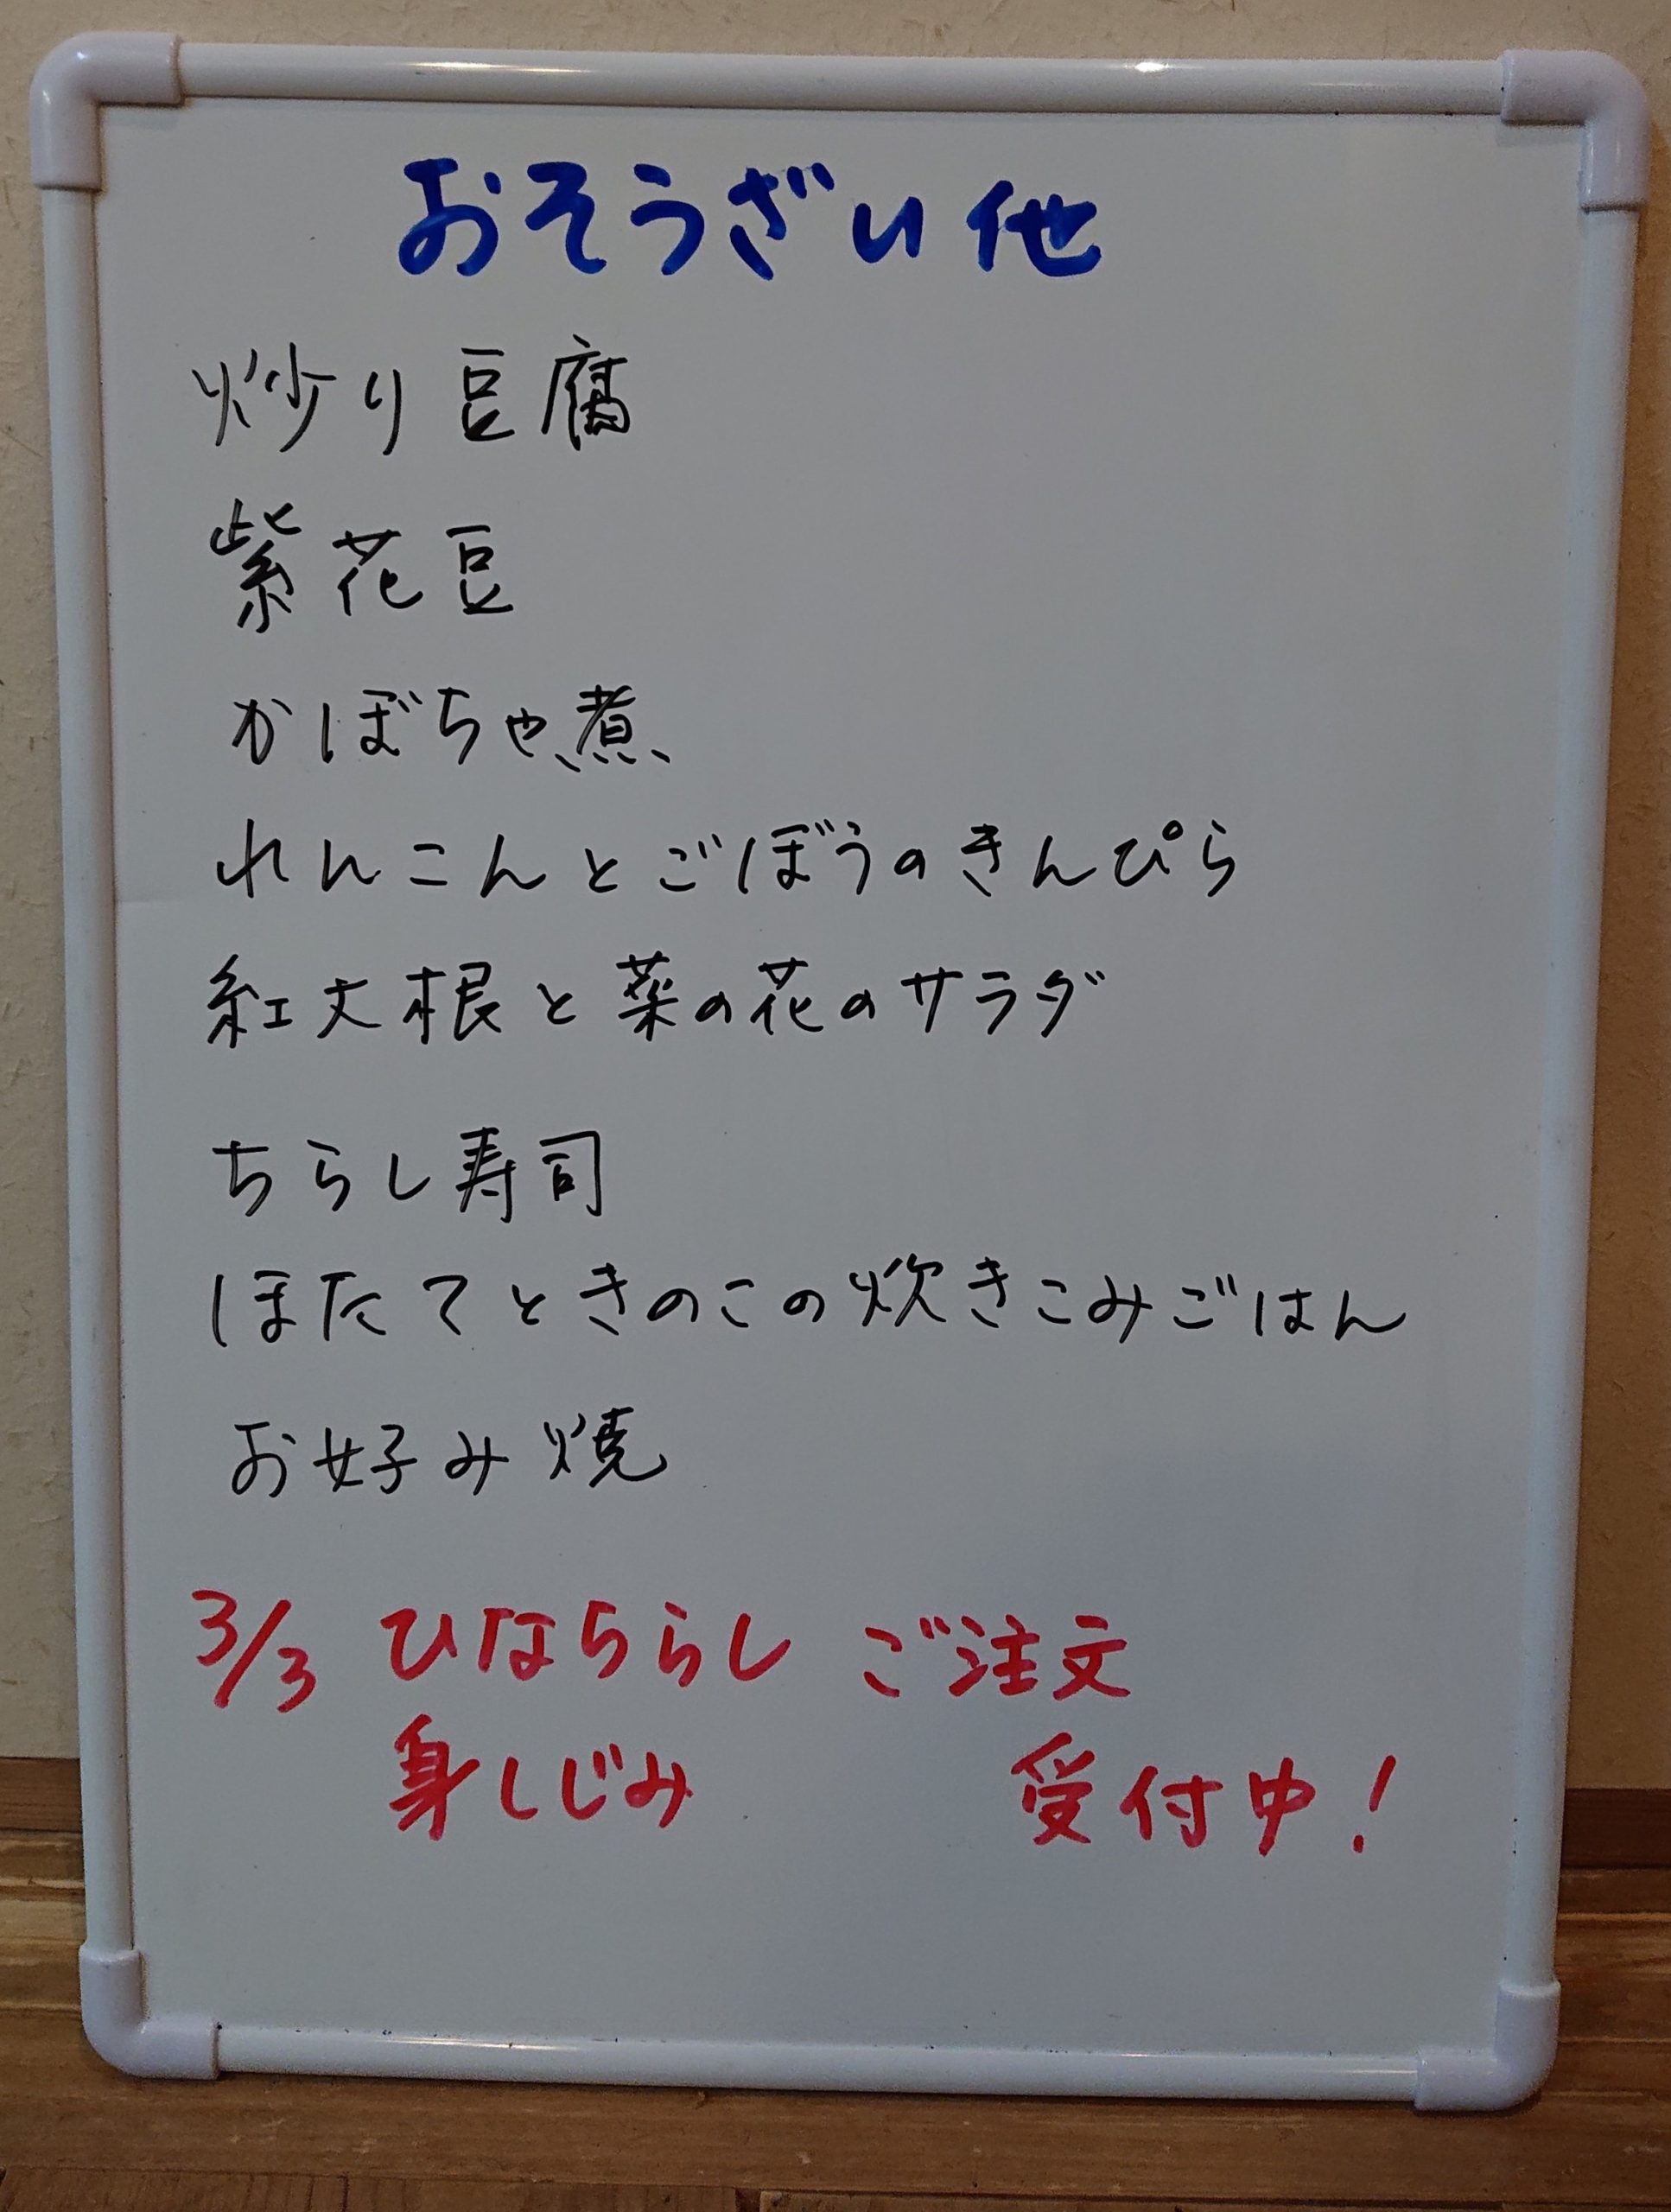 おそうざい他
炒り豆腐
紫花豆
かぼちゃ煮
れんこんとごぼうのきんぴら
紅大根と菜の花のサラダ
ちらし寿司
ほたてときのこの炊きこみごはん
お好み焼
3/3 ひなちらし ご注文
身しじみ 受付中!